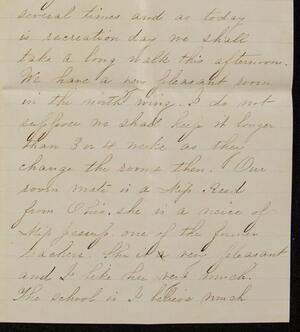 several times and as today
is recreation day we shall
take a long walk this afternoon.
We have a very pleasant room
in the ninth wing. I do not
suppose we shall keep it longer
than 3 or 4 weeks as they
change the rooms then. Our
room mate is a Miss Reed
from Ohio, she is a neice of
Miss Jessup, one of the former
teachers. She is a very pleasant
and I like her very much.
The school is I believe much